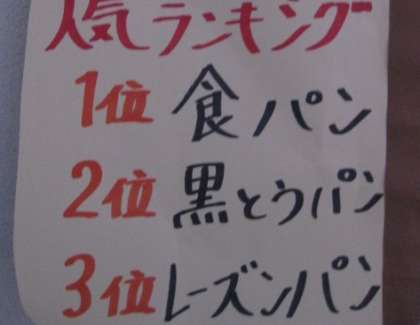 人気ランキング
1位 食パン
2位 黒とうパン
3位 レーズンパン